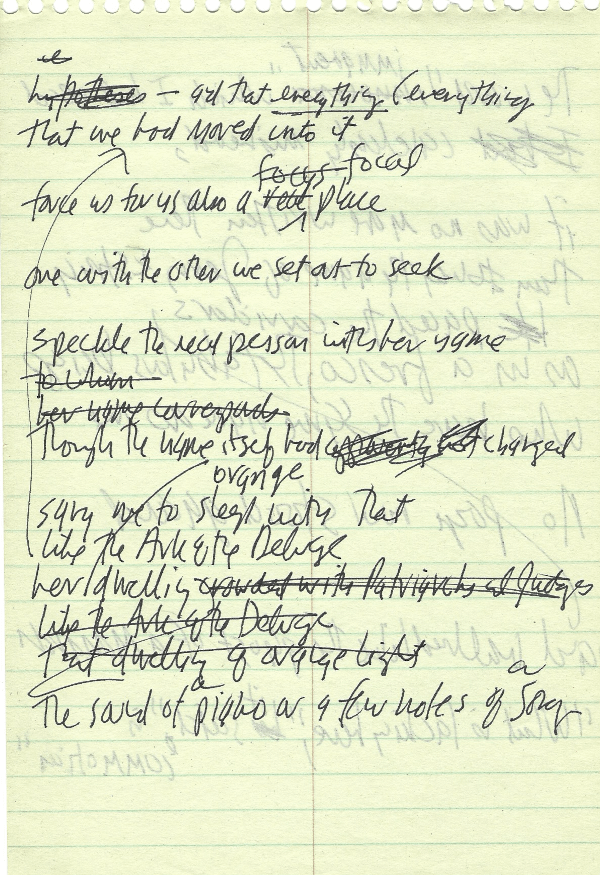 hypotheses — and that everything (everything
that we had moved into it
focus focal
force us for us also a real place
one with the other we set out to seek
speckle the real person with her name
to whom
her name corresponds
Though the name itself had apparently not changed
orange
sung me to sleep with that
like the Ark of the Deluge
her dwelling crowded with Patriarchs and Judges
like the Ark of the Deluge
That dwelling of orange light
a
a
The sound of piano or a few notes of song